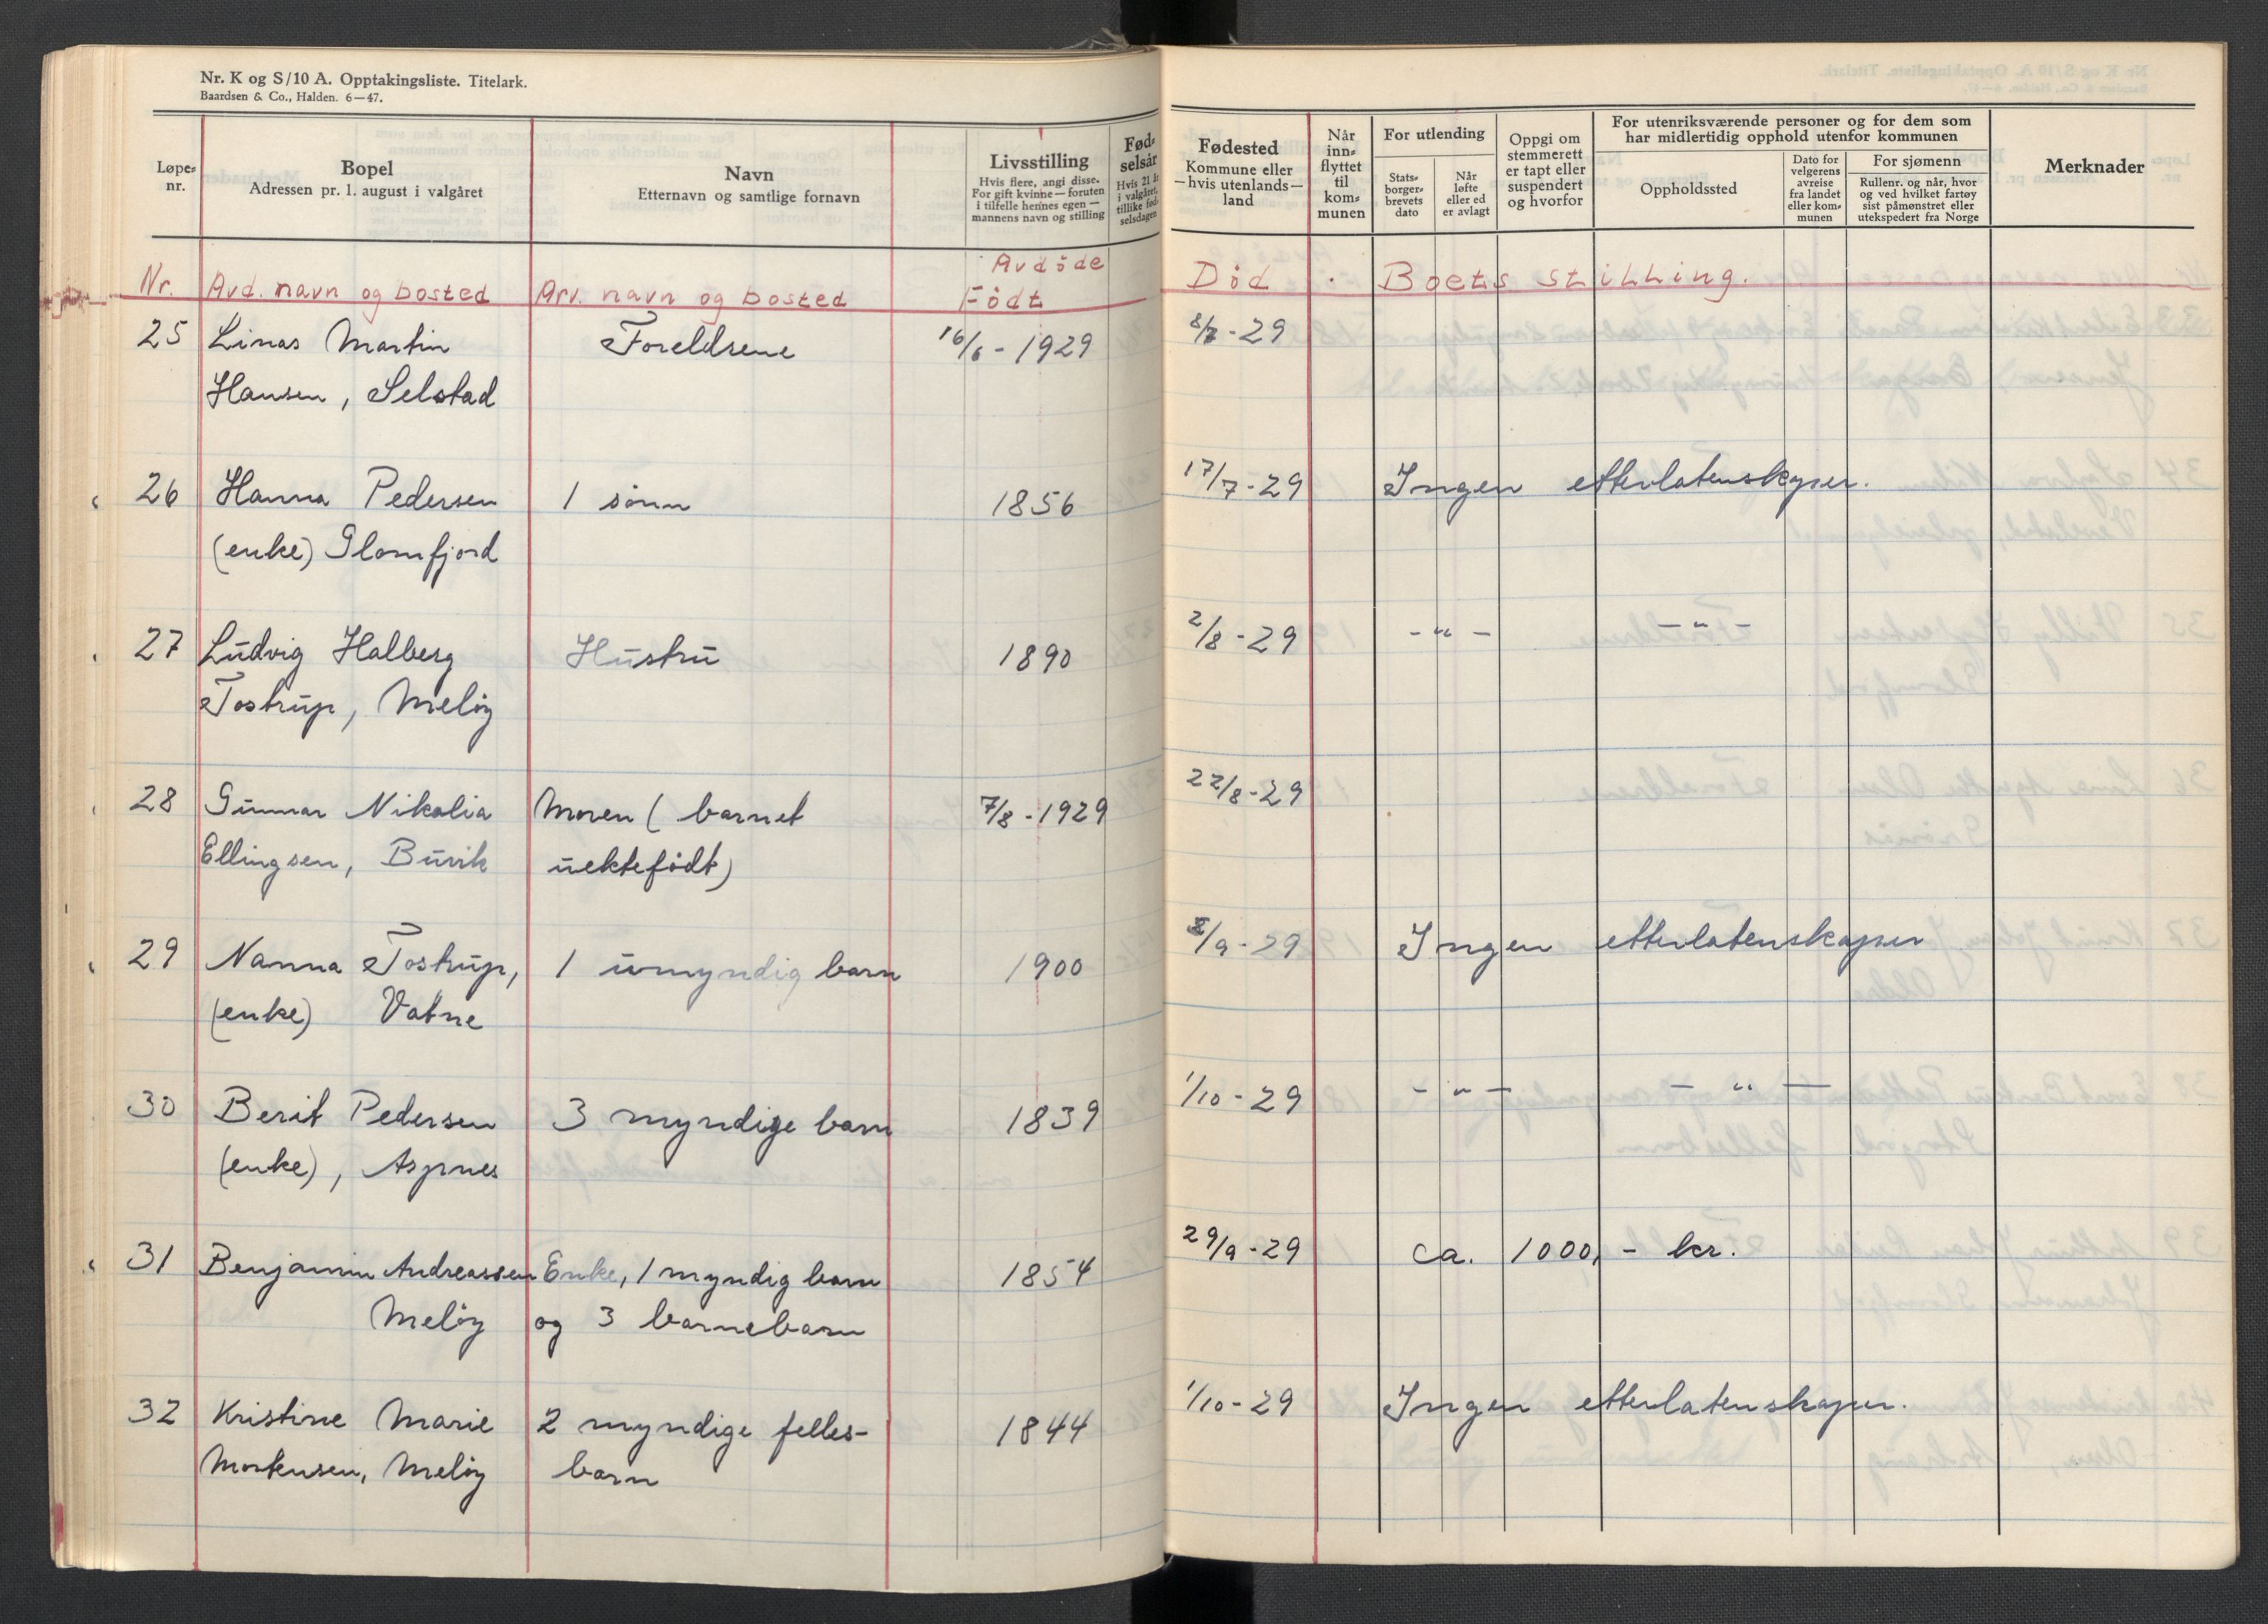 Nr. K og S/10 A. Opptakingsliste. Titelark.
Baardsen & Co., Halden. 6—47.
Løpe-
nr.
Bopel
Adressen pr. 1. august i valgåret
Navn
Etternavn og samtlige fornavn
Livsstilling
Hvis flere, angi disse.
For gift kvinne — foruten
i tilfelle hennes egen —
mannens navn og stilling
Fød-
selsår
Hvis 21 år
i valgåret,
tillike fød-
selsdagen
Fødested
Kommune eller
— hvis utenlands —
land
Når
inn-
flyttet
til
kom-
munen
For utlending
Stats-
borger-
brevets
dato
Når
løfte
eller ed
er avlagt
Oppgi om
stemmerett
er tapt eller
suspendert
og hvorfor
For utenriksværende personer og for dem som
har midlertidig opphold utenfor kommunen
Oppholdssted
Dato for
velgerens
avreise
fra landet
eller kom-
munen
For sjømenn
Rullenr. og når, hvor
og ved hvilket fartøy
sist påmønstret eller
utekspedert fra Norge
Merknader
Nr. Avd. navn og bosted Arv. navn og bosted Avdøde
Født Død . Boets stilling.
25 Linas Martin Foreldrene 16/6 - 1929 8/7 - 29
Hansen, Selstad
26 Hanna Pedersen 1 sønn 1856 17/7 - 29 Ingen etterlatenskaper.
(enke) Glomfjord
27 Ludvig Halberg Hustru 1890 2/8 - 29 - " - - " -
Tostrup, Meløy
28 Gunnar Nikolia Moren ( barnet 7/8 - 1929 22/8 - 29
Ellingsen, Buvik uektefødt)
29 Nanna Tostrup, 1 umyndig barn 1900 /9 - 29 Ingen etterlatenskaper
(enke) Vatne
30 Berit Pedersen 3 myndige barn 1839 1/10 - 29 - " - - " -
(enke), Aspnes
31 Benjamin Andreassen Enke, 1 myndig barn 1854 29/9 - 29 ca. 1000, - kr.
Meløy og 3 barnebarn
32 Kristine Marie 2 myndige felles- 1844 1/10 - 29 Ingen etterlatenskaper.
Mortensen, Meløy barn